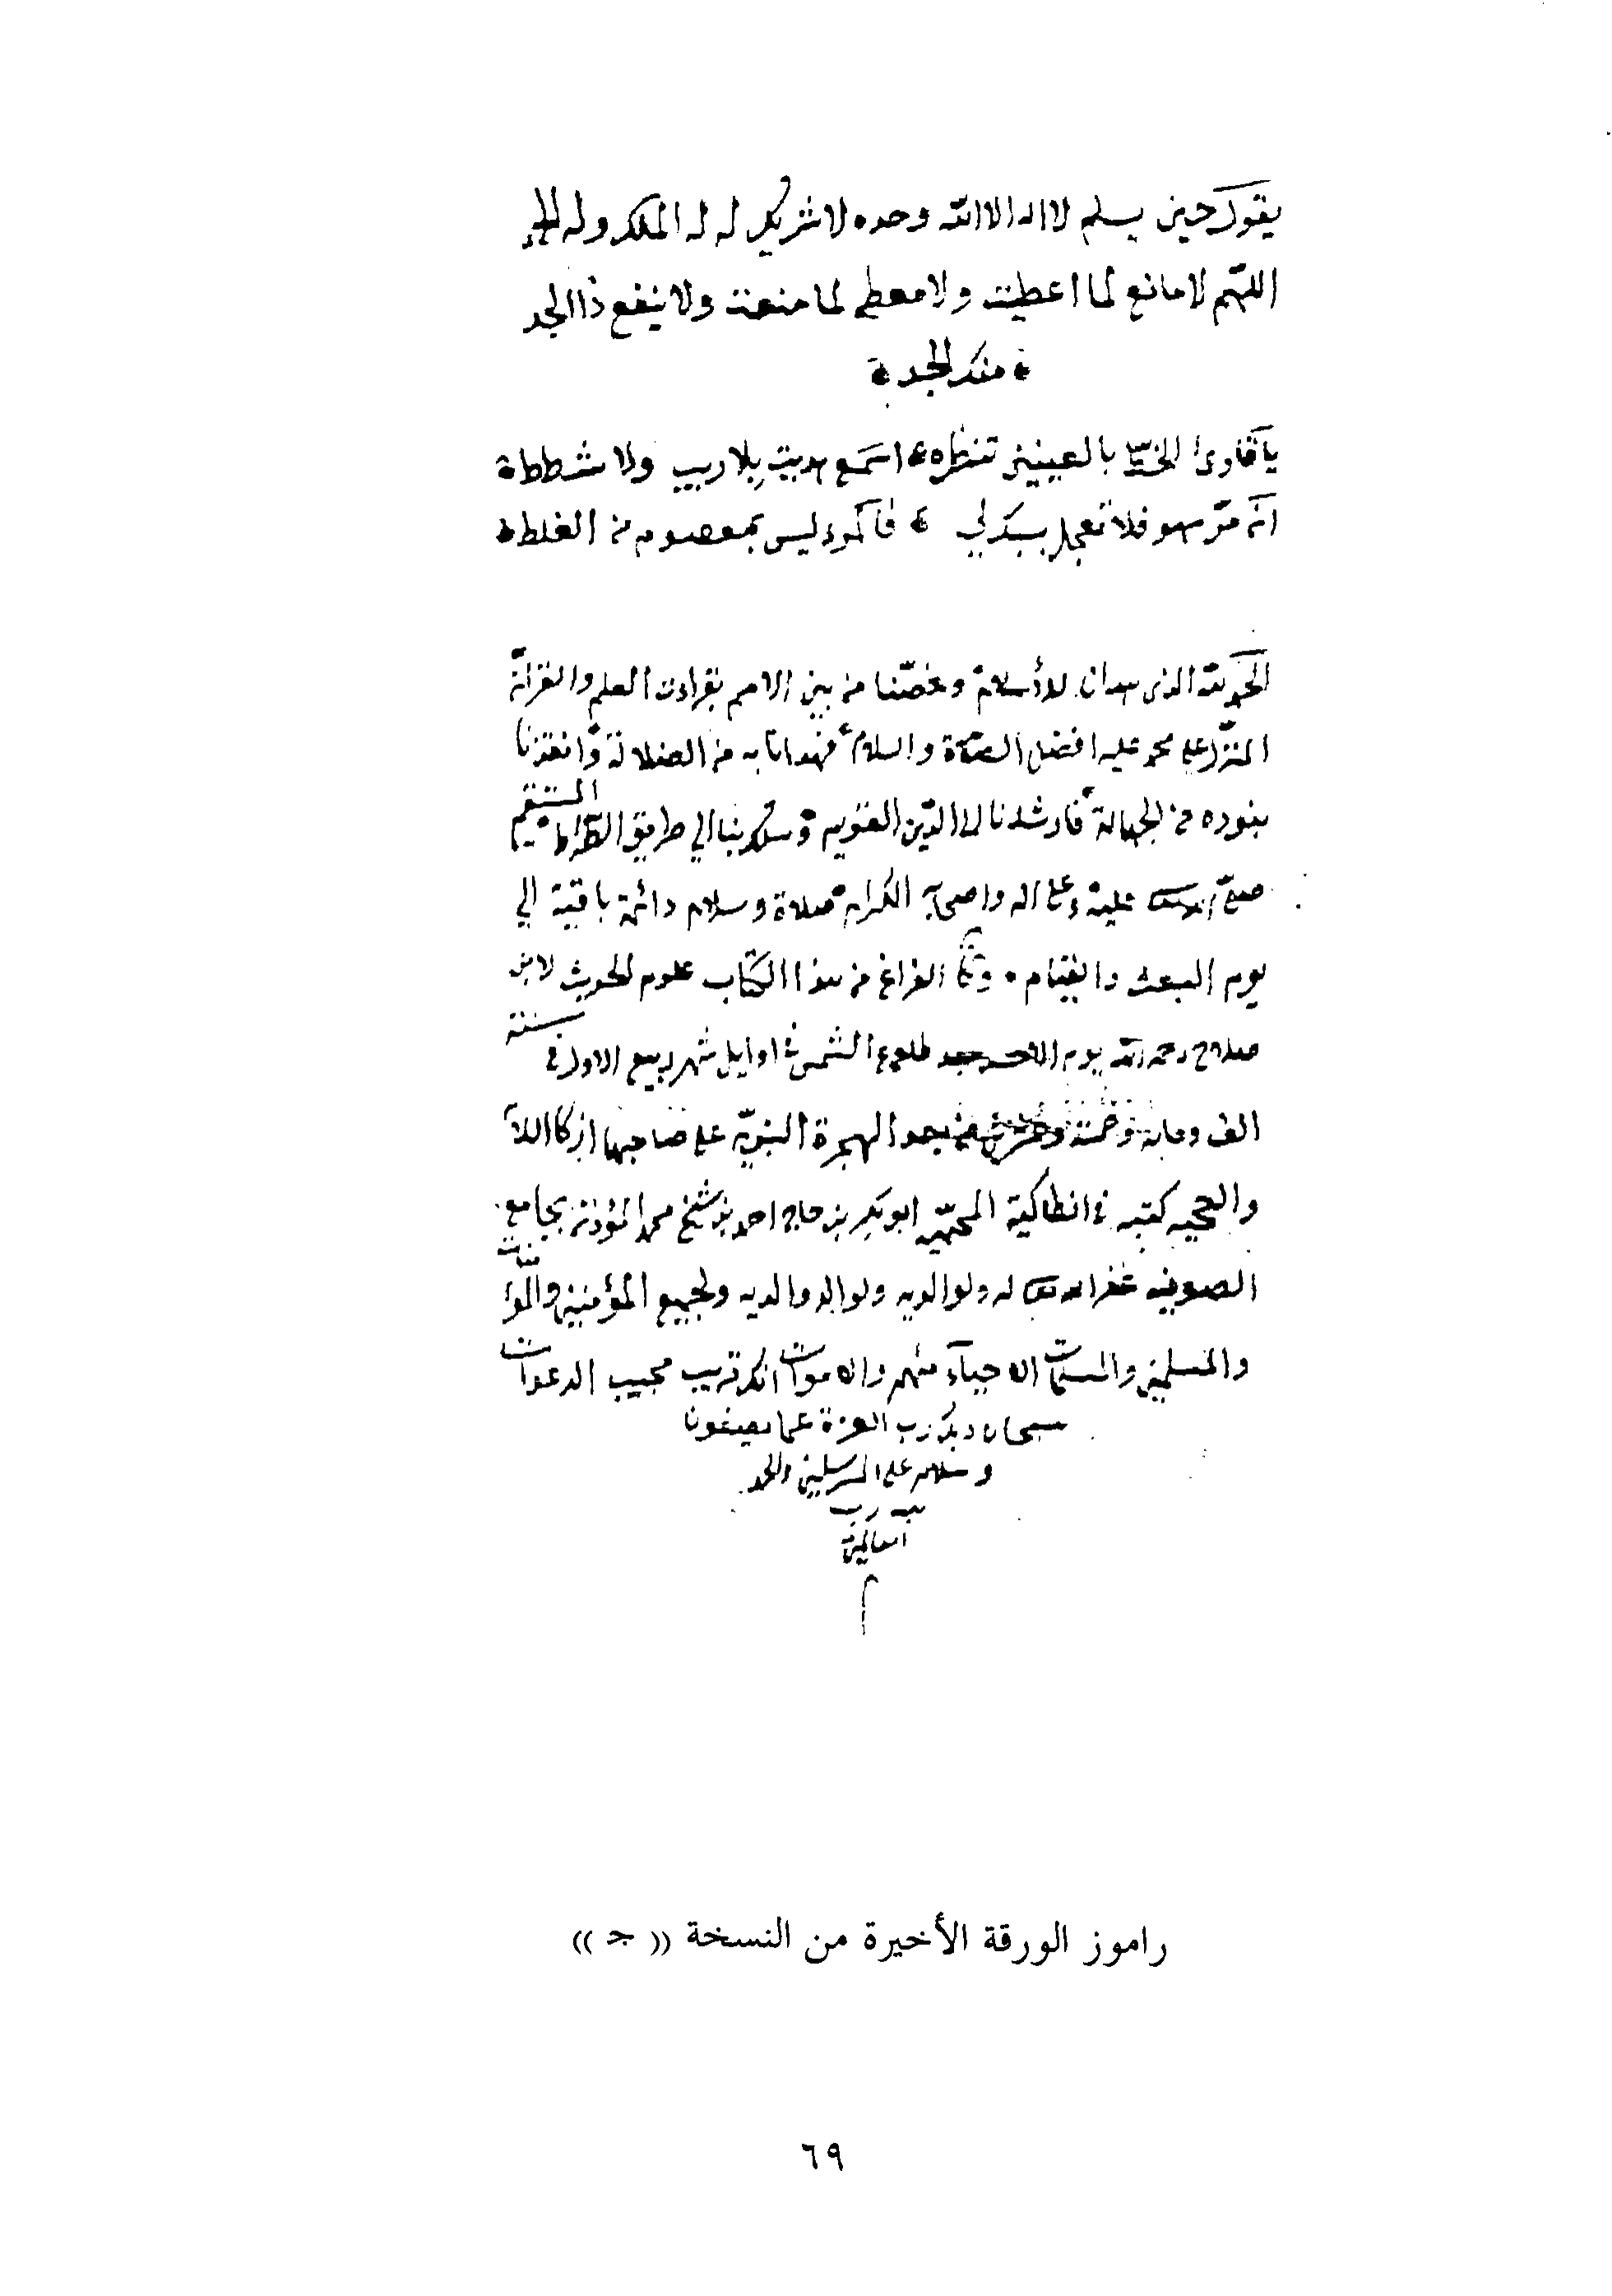 يقول حين يسلم لا اله الا الله وحده لا شريك له له الملك وله الحمد
اللهم لا مانع لما اعطيت ولا معطي لما منعت ولا ينفع ذا الجد
منك الجد
يا قارى الخط بالعينين تنظره اسمع هديت بلا ريب ولا شطط
ان مر سهو فلا تعجل بسبك لي فالمرء ليس بمعصوم من الغلط
الحمد لله الذى هدانا للأسلام وخصّنا من بين الامم بقراءت العلم والقرآن
المنزل على محمد عليه افضل الصلاة والسلام فهدانا به من الضلالة وانقذنا
بنوره من الجهالة فارشدنا الى الدّين القويم وسلك بنا الي طريق الصراط المستقيم
صلى الله تعالى عليه وعلى اله واصحابه الكرام صلاة وسلام دائمة باقية الي
يوم البعث والقيام وتم الفراغ من هذا الكتاب علوم الحديث لابن
صلاح رحمه الله يوم الاحد بعد طلوع الشمس فى اوايل شهر ربيع الاول فى سنة
الف ومايه وخمسة من بعد الهجرة النبويّه على صاحبها ازكا
والتحيه كتبه فى انطاكية المحميّه ابو بكر بن حاج احمد بن شيخ محمد المؤذن بجامع
الصوفيه غفر الله تعالى له ولوالديه ولوالد والديه ولجميع المؤمنين والمؤمنات
والمسلمين والمسلمات الاحيآء منهم والاموات انك قريب مجيب الدعوات
سبحان ربك رب العزة عما يصفون
وسلام على المرسلين والحمد
لله رب
العالمين
م
راموز الورقة الأخيرة من النسخة (( جـ ))
٦٩